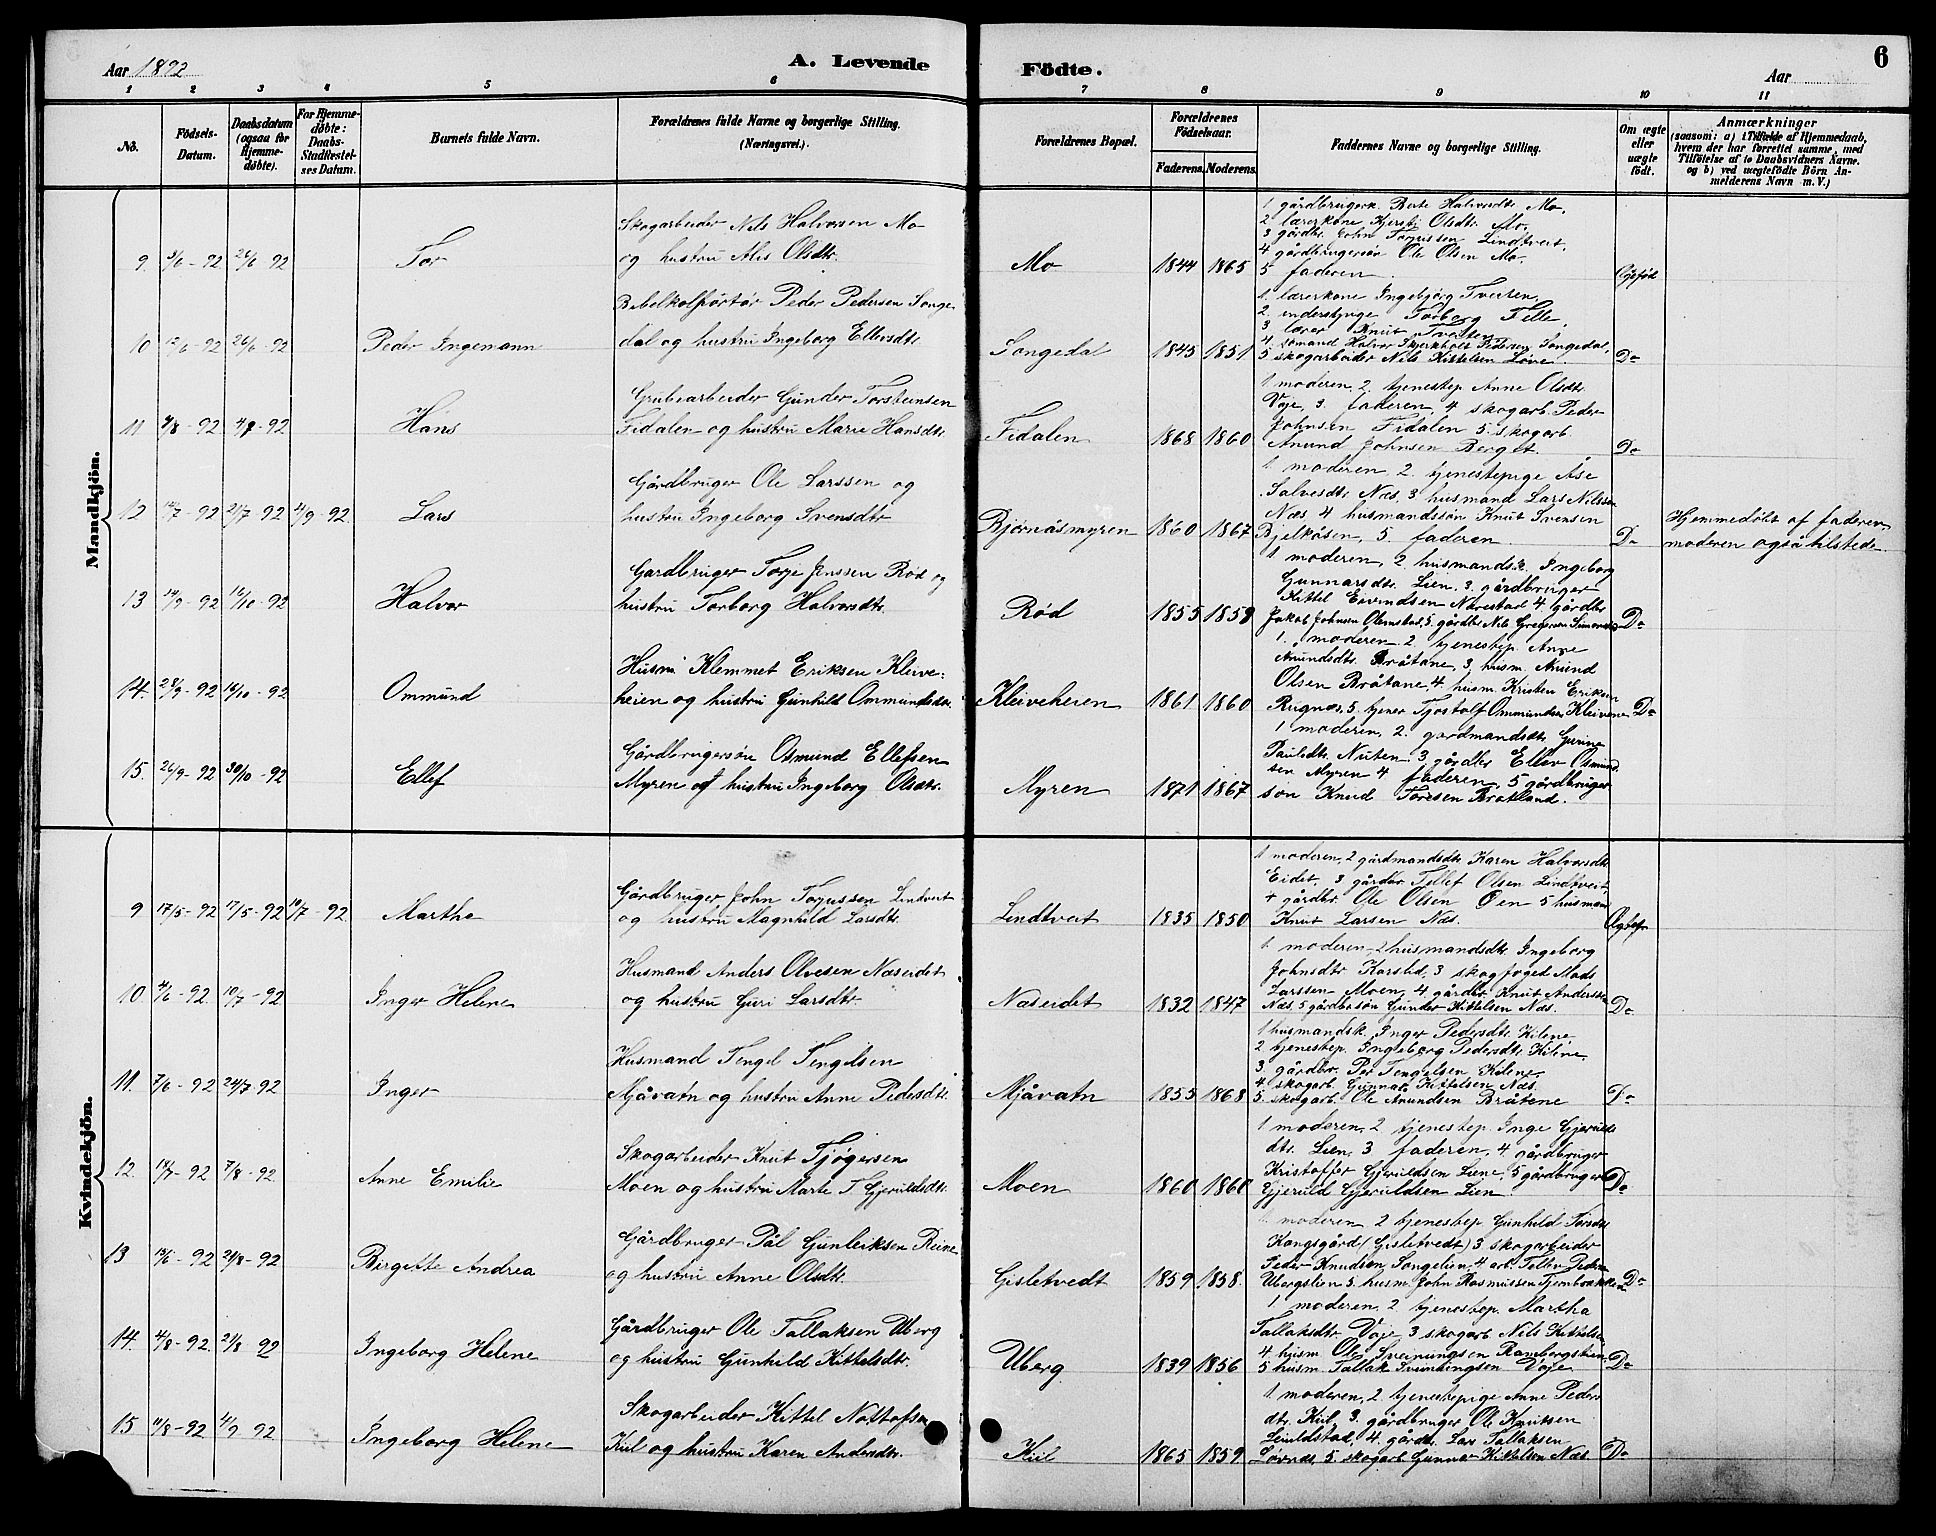 Aar 1892
A. Levende
Födte.
Aar
6
1 2 3 4 5 6 7 8 9 10 11
No.
Födsels-
Datum.
Daabsdatum
(ogsaa for
Hjemme-
døbte).
For Hjemme-
døbte:
Daabs-
Stadfæstel-
ses Datum.
Barnets fulde Navn.
Forældrenes fulde Navne og borgerlige Stilling.
(Næringsvei.)
Forældrenes Bopæl.
Forældrenes
Fødselsaar.
Faderens. Moderens.
Faddernes Navne og borgerlige Stilling.
Om ægte
eller
uægte
født.
Anmærkninger
(saasom: a) i Tilfælde af Hjemmedaab,
hvem der har forrettet samme, med
Tilføielse af to Daabsvidners Navne.
og b) ved uægtefødte Börn An-
melderens Navn m. V.)
Mandkjön.
9. 26/6 92
Tor
Skogarbeider Nils Halvorsen Mo
og hustru Alis Olsdtr.
Mo 1844 1865
1 gårdbrugerk. Berte Halvorsdtr Mo,
2 lærerkone Kjersti Olsdtr Mo,
3 gårdbr. John Torjussen Lindtveit,
4 gårdbrugersøn Ole Olsen Mo.
5 faderen.
10 12/6-92 26/6-92
Peder Ingemann
Bibelkolportør Peder Pedersen Songe
dal og hustru Ingeborg Ellefsdtr
Songedal 1845 1851
1. lærerkone Ingeborg Tveiten,
3 lærer Knut Tveiten
4. sømand Halvor Pedersen Songedal,
5 skogarbeider Nils Kittelsen Løne.
Do
11 7/8-92 4/9-92
Hans
Grubearbeider Gunder Torsteinsen
Fidalen og hustru Marie Hansdtr
Fidalen 1868 1860
1 moderen, 2. tjenestep. Anne Olsdtr.
Voje, 3. faderen, 4 skogarb. Peder
Johnsen Fidalen 5. skogarb.
Anund Johnsen Berget.
Do
12 21/7-92 4/9-92
Lars
Gårdbruger Ole Larssen og
hustru Ingeborg Svensdtr
Bjørnåsmyren 1860 1867
1 moderen, 2. tjenestepige Åse
Salvesdtr Næs. 3 husmand Lars Nilssen
Næs 4 husmandssøn Knut Svensen
Bjelkåsen, 5. faderen
Do
Hjemmedöbt af faderen,
moderen også tilstede
13 14/9-92 16/10-92
Halvor
Gardbruger Torje Jenssen Rød og
hustru Torborg Halvorsdtr.
Rød 1855 1858
1 moderen, 2 husmandsk. Ingeborg
Gunnarsdtr. Lien, 3. gårdbruger
Kittel Eivindsen Nærestad 4. gårdbr
Jakob Johnsen Olimstad, 5. gårdbr Nils Gregersen
Do
14. 23/9-92 16/10-92
Ommund
Husm. Klemmet Eriksen Kleive-
heien og hustru Gunhild Ommundsdtr.
Kleiveheien 1861 1860
1. moderen, 2 tjenestep. Anne
Anundsdtr. Bråtane, 3 husm. Anund
Olsen Bråtane, 4. husm. Kristen Eriksen
Rugnæs, 5. tjener Tjostolf Ommundsen Kleivene
Do
15. 26/9-92 30/10-92
Ellef
Gårdbrugersøn Osmund Ellefsen
Myren og hustru Ingeborg Olsdtr.
Myren 1871 1867
1 moderen, 2. gardmandsdtr Gurine
Paulsdtr. Nuten, 3 gårdbr Ellev Osmund
sen Myren 4 faderen, 5 gårdbruger
søn Knud Toresen Bratland.
Kvindekjön.
9 17/5-92 17/5-92 10/7-92
Marthe
Gårdbruger John Torjussen Lindtveit
og hustru Magnhild Larsdtr.
Lindtveit 1835 1850
1 moderen, 2 gårdmandsdtr Karen Halvorsdtr
Eidet, 3 gårdbr Tellef Olsen Lindtveit,
4 gårdbr. Ole Olsen Øen 5 husmand
Knut Larsen Næs.
10 4/6-92 10/7-92
Inger Helene
Husmand Anders Olvesen Næseidet
og hustru Guri Larsdtr
Næseidet 1832 1847
1. moderen, 2 husmandsdtr. Ingeborg
Johnsdtr Karslid, 3 skogfoged Mads
Larssen Moen, 4 gårdbr Knut Anderssen
Næs, 5 gårdbrsøn Gunder Kittelsen Næs.
Do
11. 7/6-92 24/7-92
Inger
Husmand Tengel Tengelsen
Mjåvatn og hustru Anne Pedersdtr.
Mjåvatn 1855 1868
1 husmandsk. Inger Pedersdtr. Kilene
2 tjenestep. Ingeborg Pedersdtr. Kilene,
3. gårdbr. Per Tengelsen Kilene,
4. skogarb. Gunnar Kittelsen Næs.
5. skogarb. Ole Anundsen Bråtene
Do
12. 7/8-92
Anne Emilie
Skogarbeider Knut Tjøgersen
Moen og hustru Marte T. Gjeruldsdtr.
Moen 1860 1860
1 moderen, 2 tjenestep. Inge Gjerulds
dtr. Lien, 3 faderen, 4. gårdbruger
Kristoffer Gjeruldsen Liene, 5 gårdbruger
Gjeruld Gjeruldsen Lien
Do
13 21/8-92
Birgitte Andrea
Gårdbruger Pål Gunleiksen Reine
og hustru Anne Olsdtr.
Gisletvedt 1859 1858
1. moderen, 2 tjenestep. Gunhild Torsdtr
Kongsgård (Gisletvedt) 3. skogarbeider
Peder Knudsen Songelien, 4 arb. Tellev Pedersen
Ubergslien 5. husm. John Rasmussen Tjernbakken
Do
14. 4/8-92. 21/8 92
Ingeborg Helene
Gårdbruger Ole Tallaksen Uberg
og hustru Gunhild Kittelsdtr.
Uberg 1839 1856
1 moderen, 2 tjenestep. Martha
Tallaksdtr. Voje 3 skogarb. Nils Kittelsen
4. husm. Ole Sveinungsen Ramborgslien,
5 husm Tallak Sveinungsen Voje
Do
15 11/8-92 4/9 92
Ingeborg Helene
Skogarbeider Kittel Nottolfsen
Kiil og hustru Karen Andersdtr.
Kiil 1865 1859
1. moderen, 2 tjenestepige Anne Peders
dtr. Kiil, 3. gårdbruger Ole Knutsen
4. gårdbr. Lars Tallaksen
Løvnæs, 5. skogarb. Gunnar Kittelsen Næs.
Do